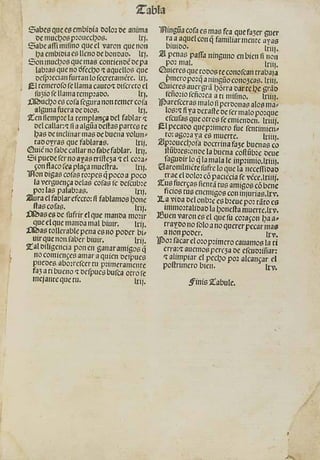 Tabla
Sabes que es embidia dolor de anima
de muchos prouechos. lxj.
Sabe assi mismo que el varon que non
ha embidia es lleno de bondad. lxj.
Son muchos que mas contienden de pa
labras que no de fecho &amp; aquellos que
El temeroso se llama cauto &amp; discreto el
suzio se llama temprado. lxj.
Mucho es cosa segura non temer cosa
alguna fuera de dios. lxj.
Ten siempre la templança del fablar &amp;
del callar: &amp; si a algũa destas partes te
has de inclinar mas de buena volun-
tad oyras que fablaras. lxij.
Quiẽ no sabe callar no sabe fablar. lxij.
Si puede ser no ayas tristeza &amp; el cora-
çon flaco sea plaça muestra. lxij.
Non digas cosas torpes q̃ poco a poco
la verguença delas cosas se descubre
por las palabras. lxij.
Aura el fablar efecto: si fablamos hone
stas cosas. lxij.
Mas es de sufrir el que manda morir
que el que manda mal biuir. lxij.
Mas tollerable pena es no poder bi-
uir que non saber biuir. lxij.
La diligencia pon en ganar amigos &amp;
no comiences amar a quien despues
puedes aborrescer tu primeramente
faz a ti bueno &amp; despues busca otro se
mejante que tu. lxij.
Ningũa cosa es mas fea que fazer guer
ra a aquel con q̃ familiarmente ayas
biuido. lxiij.
A penas passa ninguno en bien si non
por mal. lxiij.
Quieres que todos te conoscan trabaja
Quieres auer grã hõrra darte he grãd
señorio señorea a ti mismo. lxiiij.
Parescerás malo si perdonas alos ma-
los: &amp; si ya
escusas que otros se emienden. lxiiij.
El pecado que primero fue sentimien-
to: agora ya es muerte. lxiiij.
Aprouechosa doctrina faze buenas co
stũbres: onde la buena costũbre deue
seguir lo q̃ la mala le imprimio. lxiiij.
Varonilmẽte sufre lo que la necessidad
trae el dolor cõ paciẽcia se vẽce. lxiiij.
Tus fuerças sientã tus amigos cõ bene
ficios tus enemigos con injurias. lxv.
La vida del onbre es breue por tãto es
immortalidad la honesta muerte. lxv.
Buen varon es el que su coraçon ha a-
traydo no solo a no querer pecar mas
a non poder. lxv.
Por sacar el oro primero cauamos la ti
erra: &amp; auemos pereza de escudriñar:
&amp; alimpiar el pecho por alcançar el
postrimero bien. lxv.
Finis Tabule.